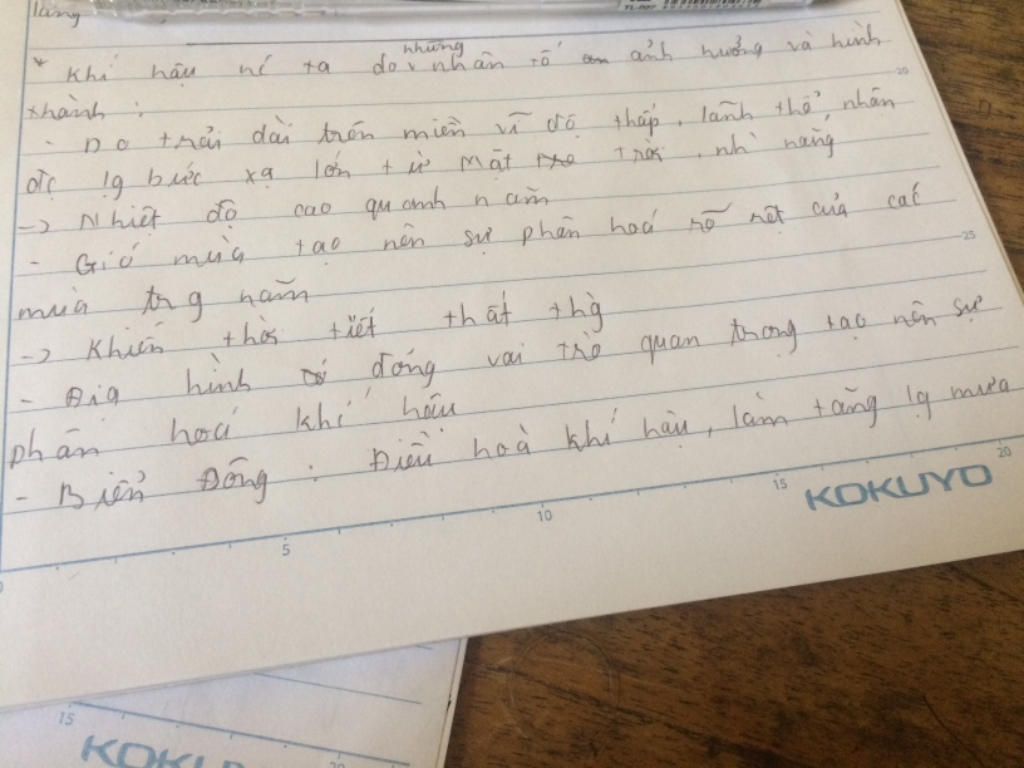 lãng
TL-007
những
* Khí hậu nc ta do v nhân tố ảnh hưởng và hình
thành :
- Do trải dài trên miền vĩ độ thấp, lãnh thổ nhận
đc lg bức xạ lớn từ Mặt trời, nh nắng
-> Nhiệt độ cao quanh năm
- Gió mùa tạo nên sự phân hoá rõ rệt của các
mùa trg năm
-> Khiến thời tiết thất thg
- Địa hình đóng vai trò quan trọng tạo nên sự
phân hoá khí hậu
- Biển Đông : Điều hoà khí hậu, làm tăng lg mưa
20
25
5
10
15
20
KOKUYO
15
20
KOKU